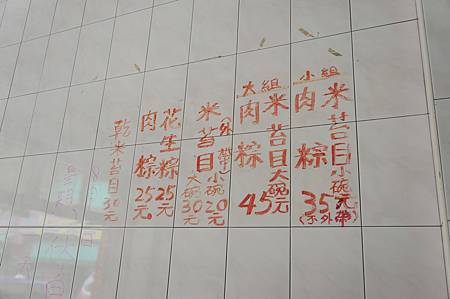 小組
米苔目小碗
肉粽
35元
(不外帶)
大組
米苔目大碗
肉粽
45元
米苔目
(外帶)
小碗20元
大碗30元
花生粽25元
肉粽25元
乾米苔目30元